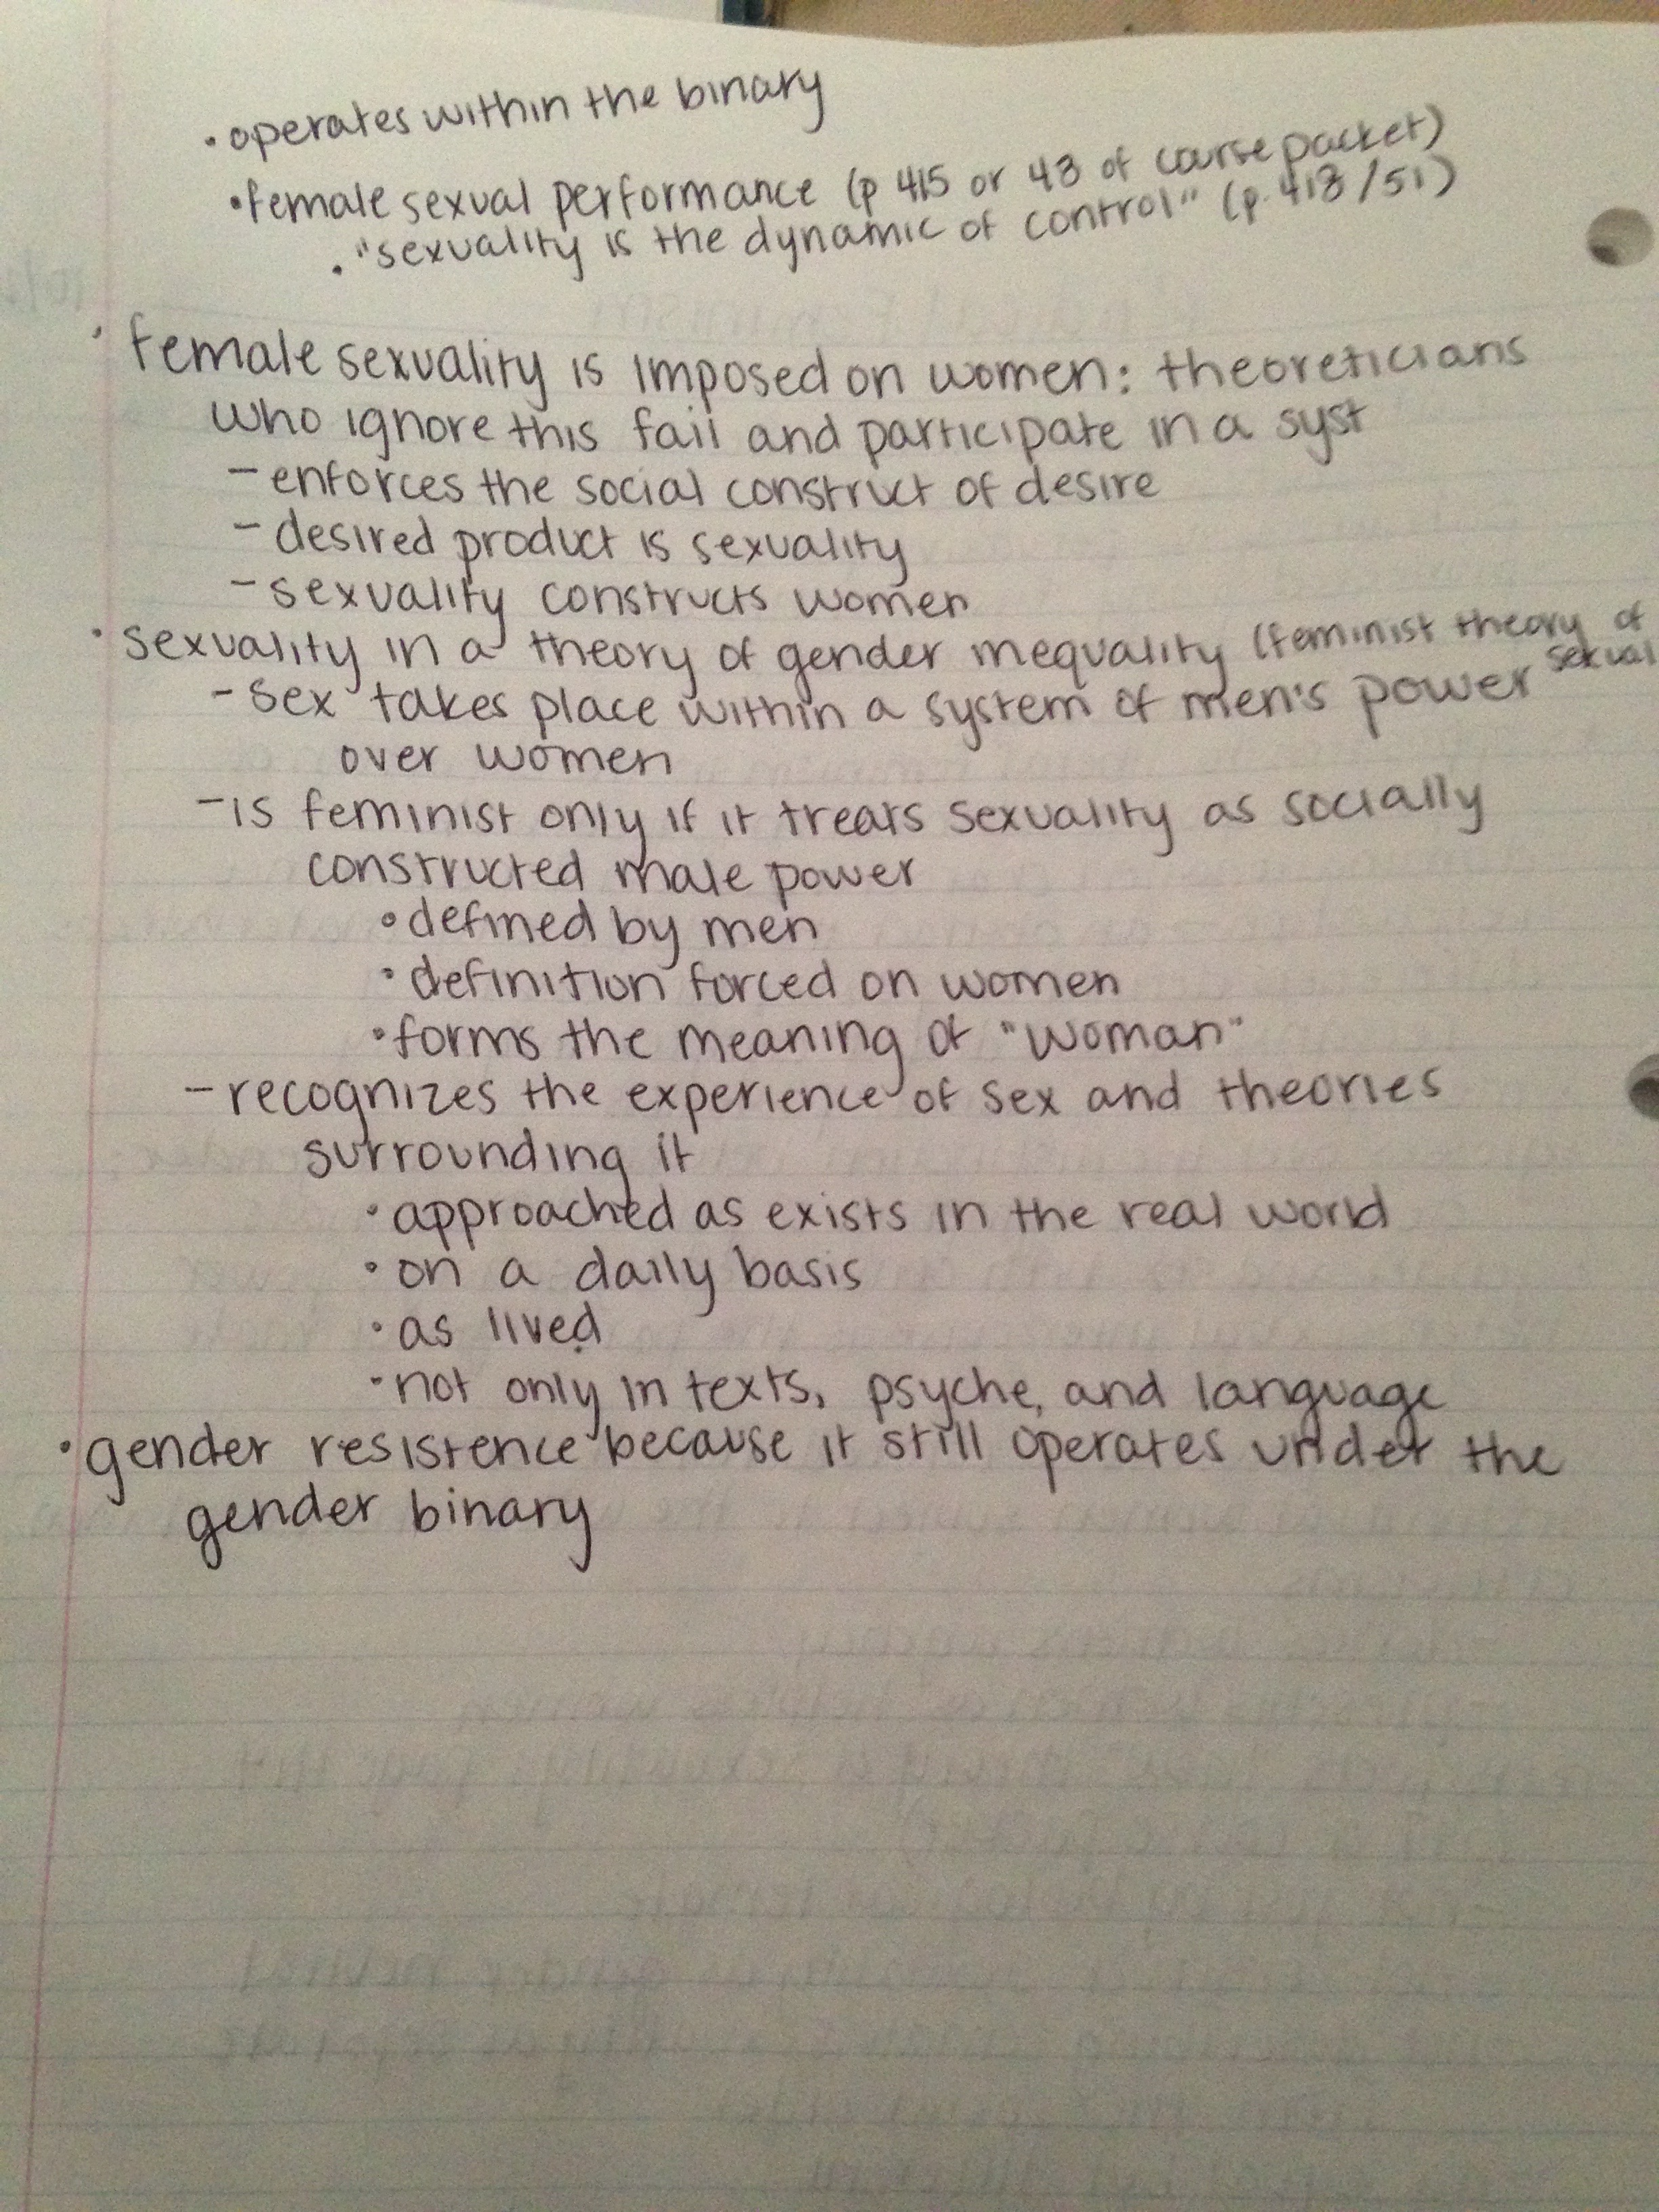 • operates within the binary
• female sexual performance (p 415 or 48 of course packet)
• "sexuality is the dynamic of control" (p. 418/51)
• female sexuality is imposed on women: theoreticians
who ignore this fail and participate in a syst
– enforces the social construct of desire
– desired product is sexuality
– sexuality constructs women
• sexuality in a theory of gender inequality (feminist theory of
sexual
– sex takes place within a system of men's power
over women
– is feminist only if it treats sexuality as socially
constructed male power
• defined by men
• definition forced on women
• forms the meaning of "woman"
– recognizes the experience of sex and theories
surrounding it
• approached as exists in the real world
• on a daily basis
• as lived
• not only in texts, psyche, and language
• gender resistence because it still operates under the
gender binary